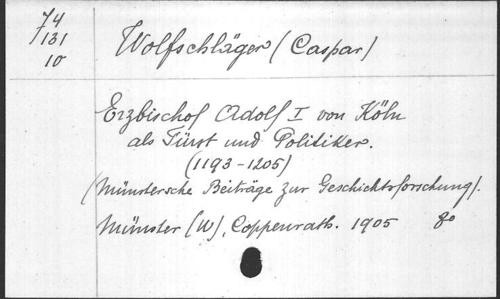 74
131
10
Wolfschläger (Caspar)
Erzbischof Adolf I von Köln
als Fürst und Politiker.
(1193-1205)
(Münstersche Beiträge zur Geschichtsforschung).
Münster (W), Coppenrath. 1905 8o